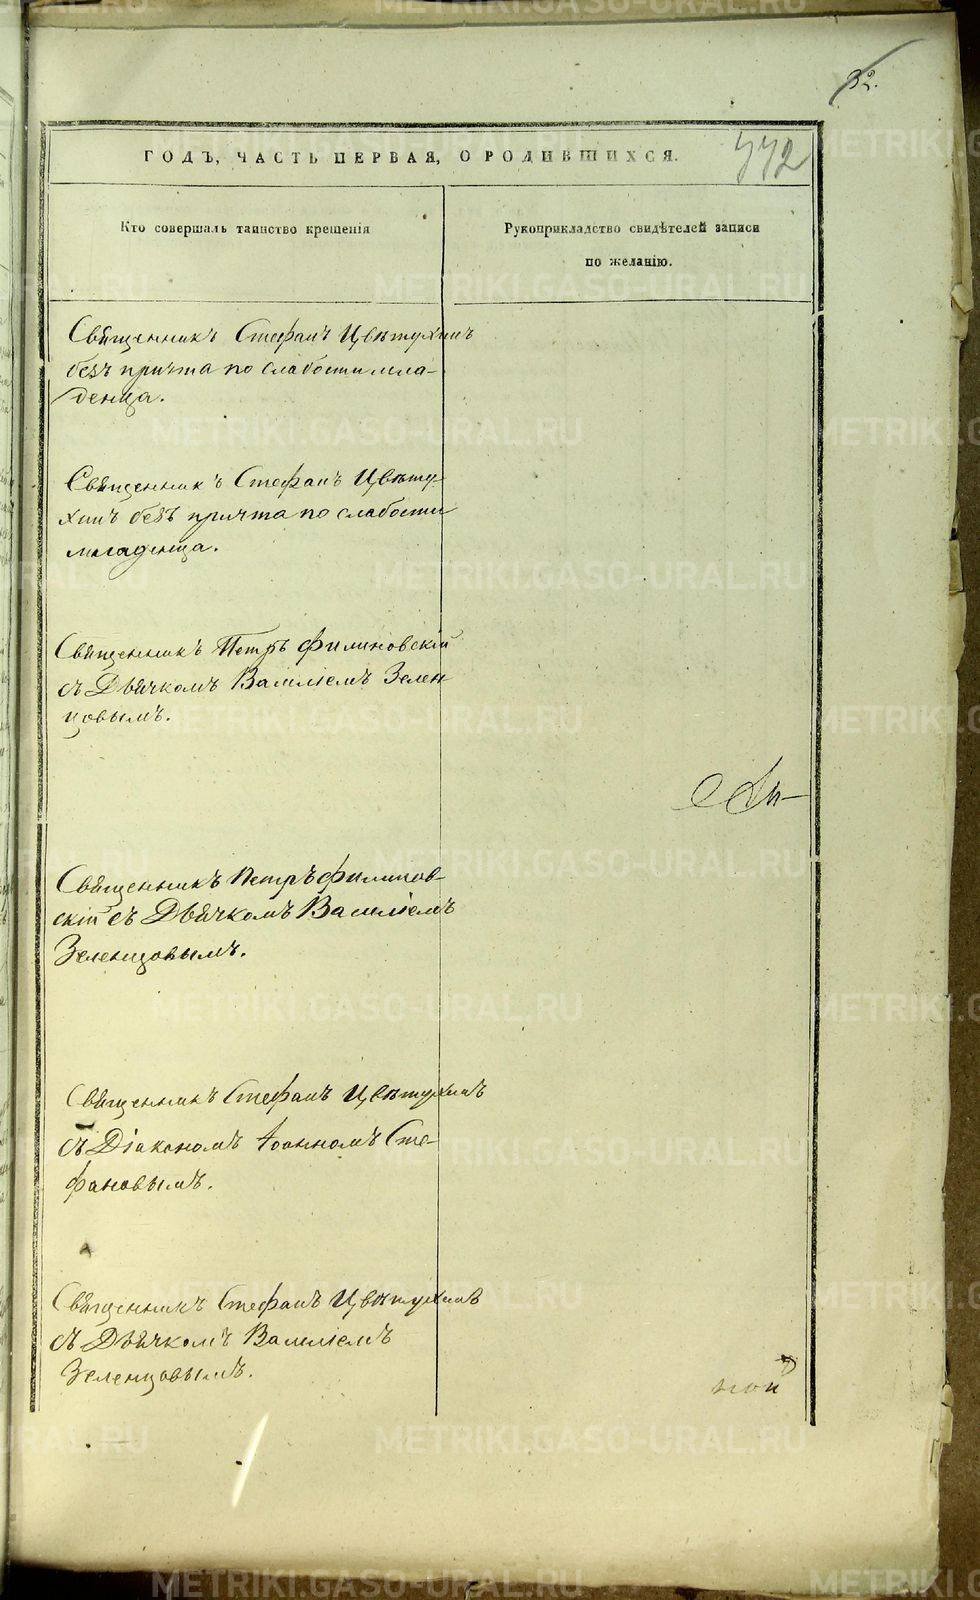 32.
ГОДЪ, ЧАСТЬ ПЕРВАЯ, О РОДИВШИХСЯ.
772
Кто совершалъ таинство крещенія
Рукоприкладство свидѣтелей записи
по желанію.
Священникъ Стефанъ Цвѣтухинъ
безъ причта по слабости мла-
денца.
Священникъ Стефанъ Цвѣту-
хинъ безъ причта по слабости
младенца.
Священникъ Петръ Филиновскій
съ Дьячкомъ Василіемъ Зелен
цовымъ.
Священникъ Петръ Филинов-
скій съ Дьячкомъ Василіемъ
Зеленцовымъ.
Священникъ Стефанъ Цвѣтухинъ
съ Діакономъ Іоанномъ Сте-
фановымъ.
Священникъ Стефанъ Цвѣтухинъ
съ Дьячкомъ Василіемъ
Зеленцовымъ.
ной
METRIKI.GASO-URAL.RU